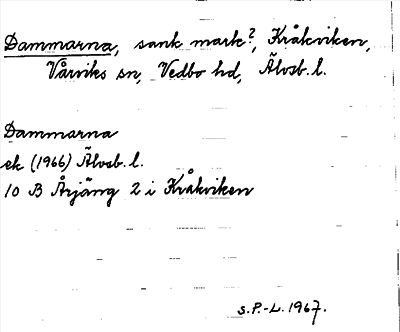 Dammarna, sank mark?, Kråkviken,
Vårviks sn, Vedbo hd, Älvsb. l.
Dammarna
ek (1966) Älvsb. l.
10 B Årjäng 2 i Kråkviken
S.P.-L. 1967.